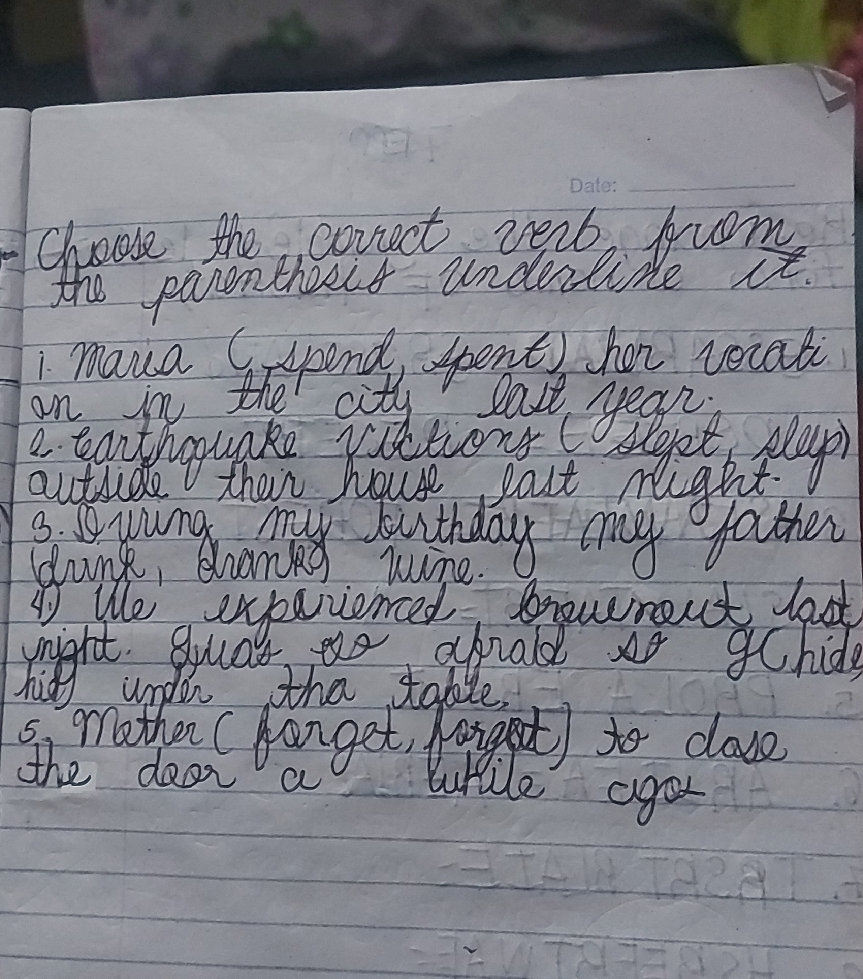 Date:
Choose the correct verb from
the parenthesis underline it.
1. Maria (spend, spent) her vocati
on in the city last year.
2. earthquake victions (slept, sleep)
outside their house last night.
3. During my birthday my father
(drink, dranks) wine.
4.) We experienced brownout last
night. I was so afraid so I (hide,
hid) under tha table.
5. Mother (forget, forgot) to close
the door a while ago